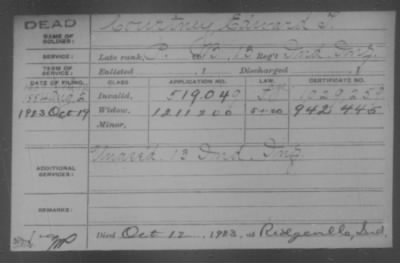 DEAD
NAME OF SOLDIER: Courtney, Edward F.
SERVICE: Late rank, P. Co. B, 13 Reg't Ind. Inf.
TERM OF SERVICE: Enlisted , 1 Discharged , 1
DATE OF FILING. CLASS. APPLICATION NO. LAW. CERTIFICATE NO.
Invalid, 519.049
1923 Oct 19 Widow, 1211200 942 445
Minor,
ADDITIONAL SERVICES: 13 Ind. Inf.
REMARKS:
Died Oct 12, 1923, at Ridgeville, Ind.